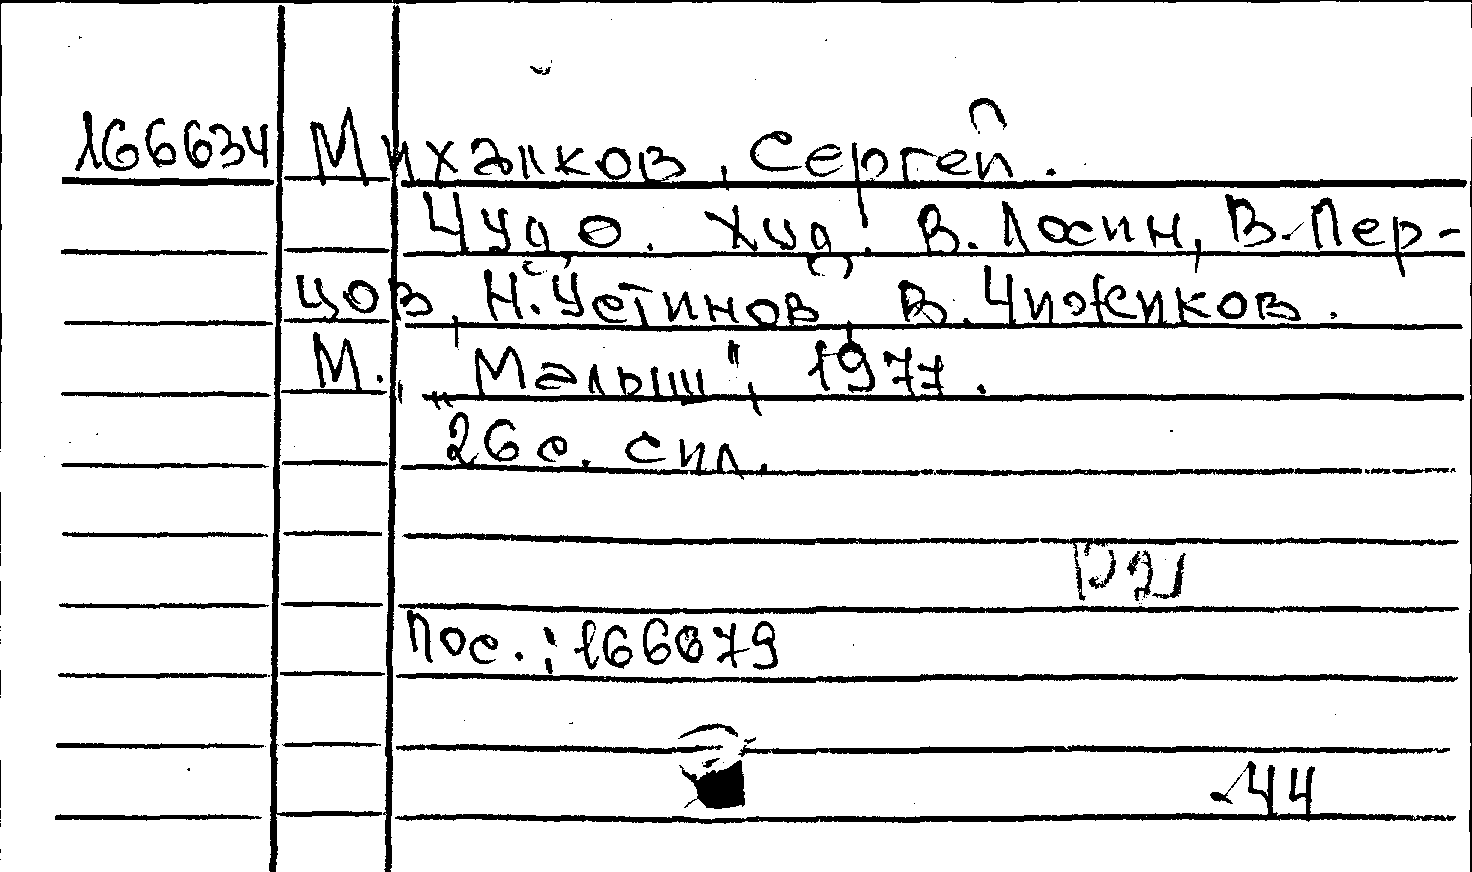 166634 Михалков, Сергей.
Чудо. Худ. В. Лосин, В. Пер-
цов, Н. Устинов, В. Чижиков.
М., "Малыш", 1977.
26 с. с ил.
Р21
Пос.: 166679
44